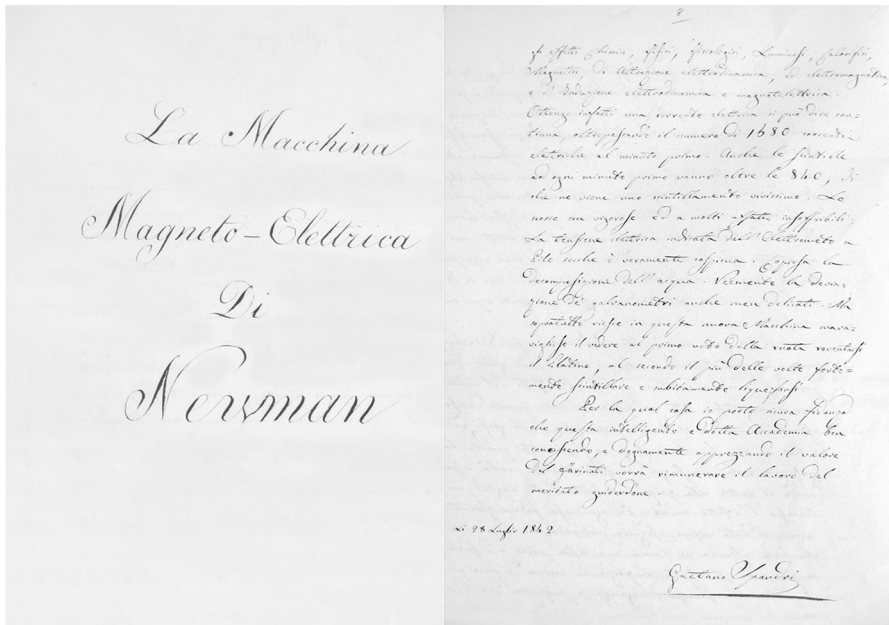 La Macchina
Magneto-Elettrica
Di
Newman
8
gli effetti Chimici, fisici, fisiologici, Luminosi, Calorifici,
Magnetici, di Attrazione elettrodinamica, ed elettromagnetica,
e d'Induzione elettrodinamica e magnetelettrica.
Ottenne infatti una corrente elettrica si può dire con-
tinua poltrepassando il numero di 1680 correnti
elettriche al minuto primo. Anche le scintille
ad ogni minuto primo vanno oltre le 840, di
che ne viene uno scintillamento vivissimo. Le
scosse son vigorose ed a molti affatto insoffribili;
La tensione elettrica indicata dell' Elettrometro a
Pile secche è veramente
decomposizione dell' acqua. Veemente la devia-
zione de' galvanometri anche men delicati. Ma
sopratutto riesce in questa nuova Macchina mara-
viglioso il vedere al primo della ruota roventarsi
il platino, al secondo il più delle volte forte-
mente scintillare e subitamente liquefarsi
Per la qual cosa io porto sicura fidanza
che questa intelligente e dotta Accademia ben
conoscendo, e degnamente apprezzando il valore
del vorrà rimunerare il lavoro del
meritato guiderdone
Li 28 Luglio 1842
Gaetano Spandri